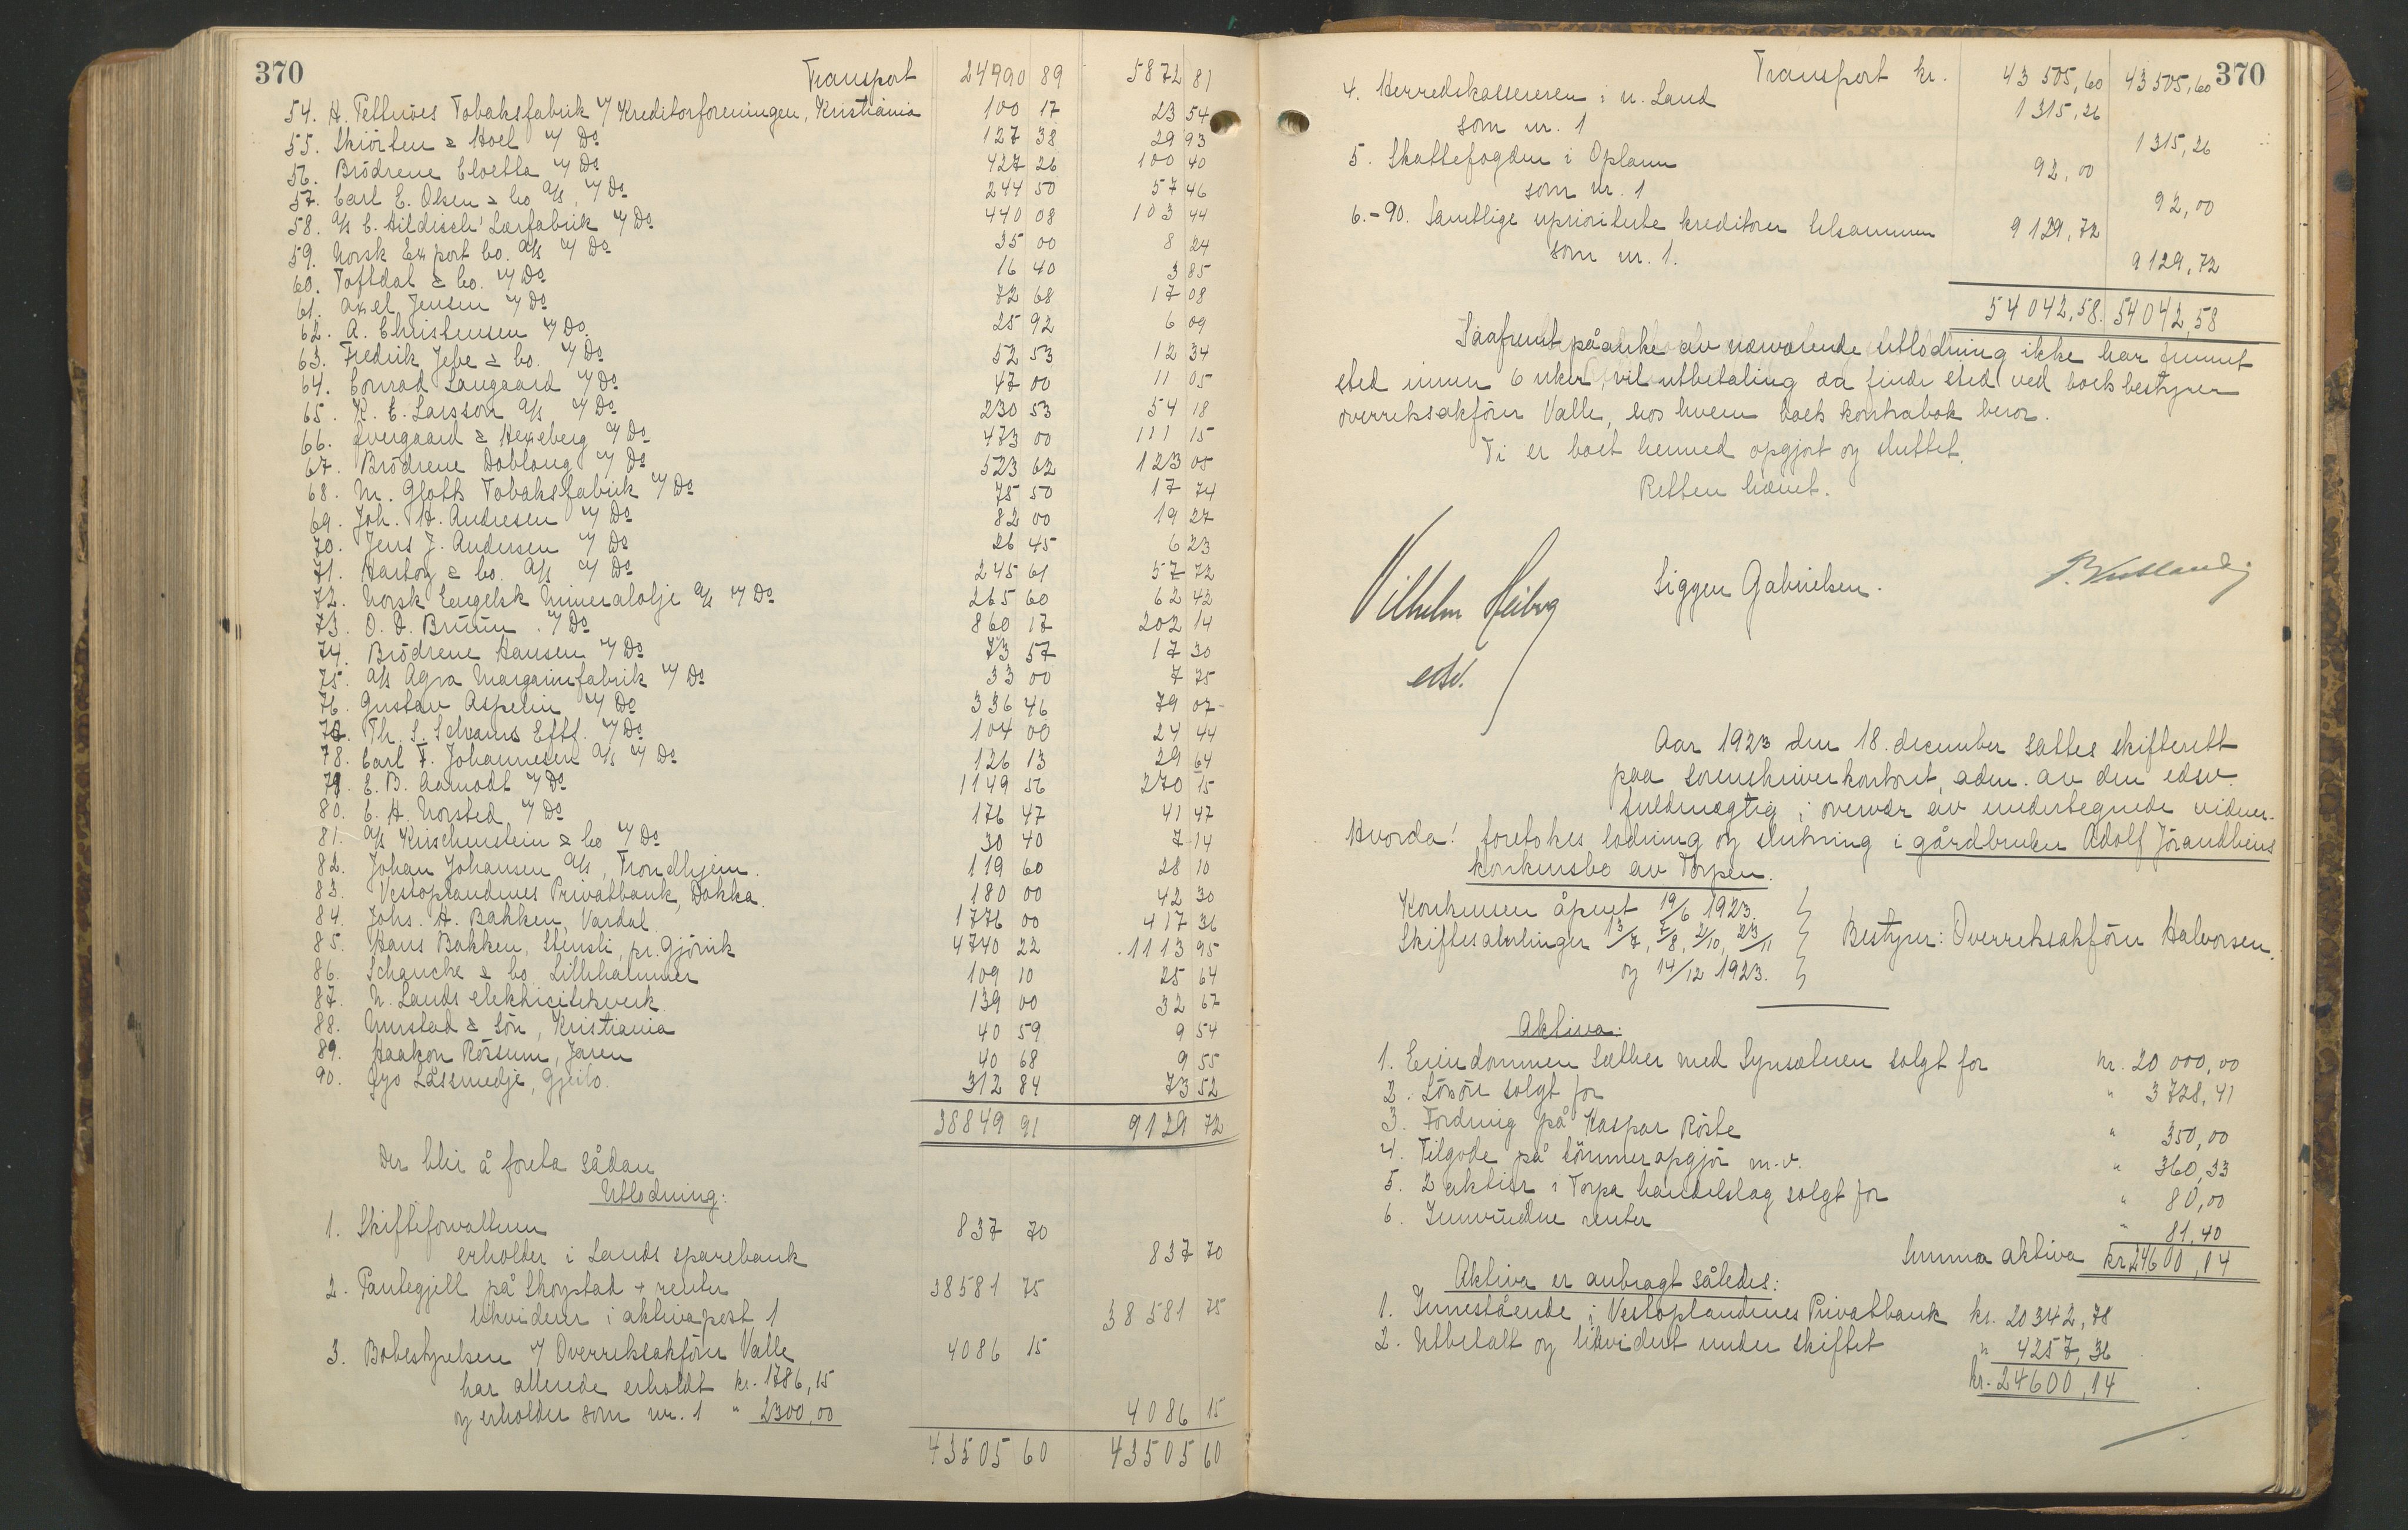 370
Transport 24990 89 5872 81
54. H. Petterøes Tobaksfabrik v/ Kreditorforeningen, Kristiania 100 17 23 54
55. Skiörten & Hoel v/ Do 127 38 29 93
56. Brödrene Cloetta v/ Do 427 26 100 40
57. Carl E. Olsen & Co a/s, v/ Do 244 50 57 46
58. a/s C. Hildisch' Lærfabrik v/ Do 440 08 103 44
59. Norsk Export Co. a/s v/ Do 35 00 8 24
60. Toftdal & Co. v/ Do 16 40 3 85
61. Axel Jensen v/ Do 72 68 17 08
62. A. Christensen v/ Do. 25 92 6 09
63. Fredrik Jebe & Co. v/ Do 52 53 12 34
64. Conrad Langaard v/ Do 47 00 11 05
65. K. E. Larsson a/s v/ Do 230 53 54 18
66. Evergaard & Hexeberg v/ Do 473 00 111 15
67. Brödrene Dobloug v/ Do 523 62 123 05
68. M. Glotts Tobaksfabrik v/ Do 75 50 17 74
69. Joh. H. Andresen v/ Do 82 00 19 27
70. Jens J. Andersen v/ Do 26 45 6 23
71. Hartog & Co. a/s v/ Do 245 61 57 72
72. Norsk Engelsk Mineralolje a/s v/ Do 265 60 62 42
73. O. A. Bruun. v/ Do 860 17 202 14
74. Brödrene Hansen v/ Do 73 57 17 30
75. a/s Agra Margarinfabrik v/ Do 33 00 7 75
76. Gustav Aspelin v/ Do 336 46 79 07
77. Th. S. Eftf. v/ Do 104 00 24 44
78. Carl F. Johannesen a/s v/ Do 126 13 29 64
79. E. B. Aamodt v/ Do 1149 56 270 15
80. C. H. Norsted v/ Do 176 47 41 47
81. a/s Krischenstein & Co v/ Do 30 40 7 14
82. Johan Johansen a/s, Trondhjem. 119 60 28 10
83. Vestoplandenes Privatbank, Dokka. 180 00 42 30
84. Johs. H. Bakken, Vardal 1776 00 417 36
85. Hans Bakken, Stensli, pr. Gjövik 4740 22 1113 95
86. Schanche & Co, Lillehammer 109 10 25 64
87. N. Lands elektricitetsverk. 139 00 32 67
88. Mustad & Sön, Kristiania 40 59 9 54
89. Haakon Rössum, Jaren 40 68 9 55
90. Gjo Låssmedje, Gjeilo. 312 84 73 52
38849 91 9129 72
Der blir å foreta sådan
Utlodning:
1. Skifteforvalteren 837 70
erholder i Lands sparebank 837 70
2. Pantegjeld på Skogstad + renter 38581 75
likviderer i aktivapost 1 38581 75
3. Bobestyrelsen v/ Overretssakförer Valle 4086 15
har allerede erholdt kr. 1786,15
og erholder som nr. 1 " 2300,00 4086 15
43505 60 43505 60
370
Transport kr. 43 505,60 43505,60
4. Herredskassereren i n. Land 1315,26
som nr. 1 1315,26
5. Skattefogden i Opland 92,00
som nr. 1 92,00
6.-90. Samtlige uprioriterte kreditorer tilsammen 9129,72
som nr. 1. 9129,72
54042,58. 54042,58
Såafremt påanke av nærværende utlodning ikke har funnet
sted innen 6 uker, vil utbetaling da finde sted ved boets bestyrer
overretssakförer Valle, hos hvem boets kontrabok beror.
Ti er boet hermed opgjort og sluttet.
Retten hævet.
Vilhelm Heiberg
edsv.
Siggen Gabrielsen.
Aar 1923 den 18. december sattes skifterett
paa sorenskriverkontoret, adm. av den edsv.
fuldmægtig i overvær av undertegnede vidner.
Hvorda: foretokes lodning og slutning i gårdbruker Adolf Jörandliens
konkursbo av Torpen.
Konkursen åpnet 19/6 1923.
Skiftesamlinger 13/7, 7/8, 2/10, 23/11
og 14/12 1923.
Bestyrer: Overretssakförer Halvorsen.
Aktiva:
1. Eiendommen Sæther med Synsæteren solgt for kr. 20 000,00
2. Lösöre solgt for " 3728,41
3. Fordring på Kaspar Röste " 350,00
4. Tilgode på tömmeropgjör m.v. " 360,33
5. 2 aktier i Torpa handelslag solgt for " 80,00
6. Innvundne renter " 81,40
Summa aktiva kr. 24600,14
Aktiva er anbragt således:
1. Innestående i Vestoplandenes Privatbank kr. 20342,78
2. Utbetalt og likvidert under skiftet " 4257,36
kr. 24600,14